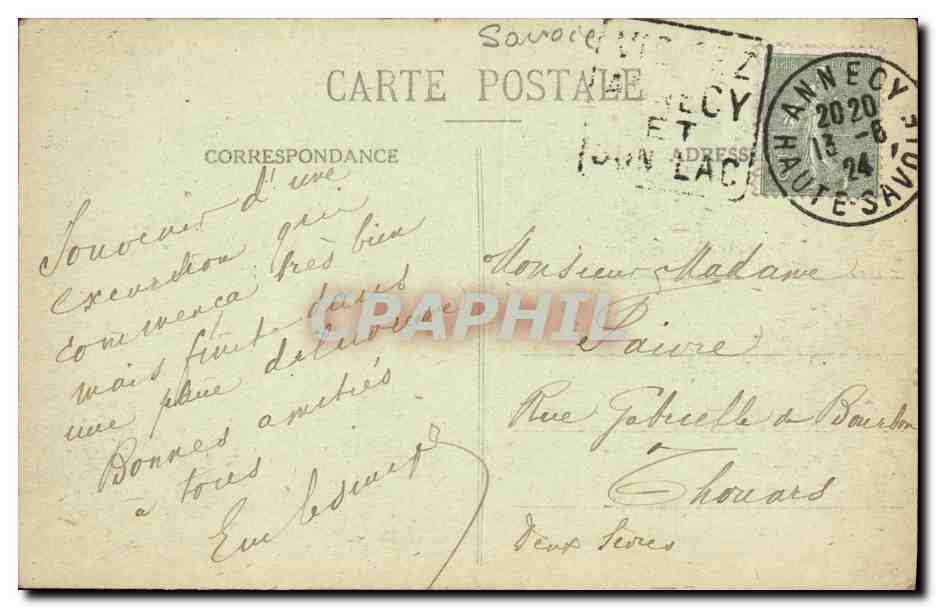 Savoie
CARTE POSTALE
VISITEZ
ANNECY
ET
SON LAC
ANNECY
20 20
13 -6
24
HAUTE-SAVOIE
CORRESPONDANCE
ADRESSE
Souvenir d'une
excursion qui
commença très bien
mais finit dans
une pluie
Bonnes amitiés
à tous
Monsieur Madame
Paivre
Rue Gabrielle de Bourbon
à
Thouars
Deux Sèvres
CPAPHIL